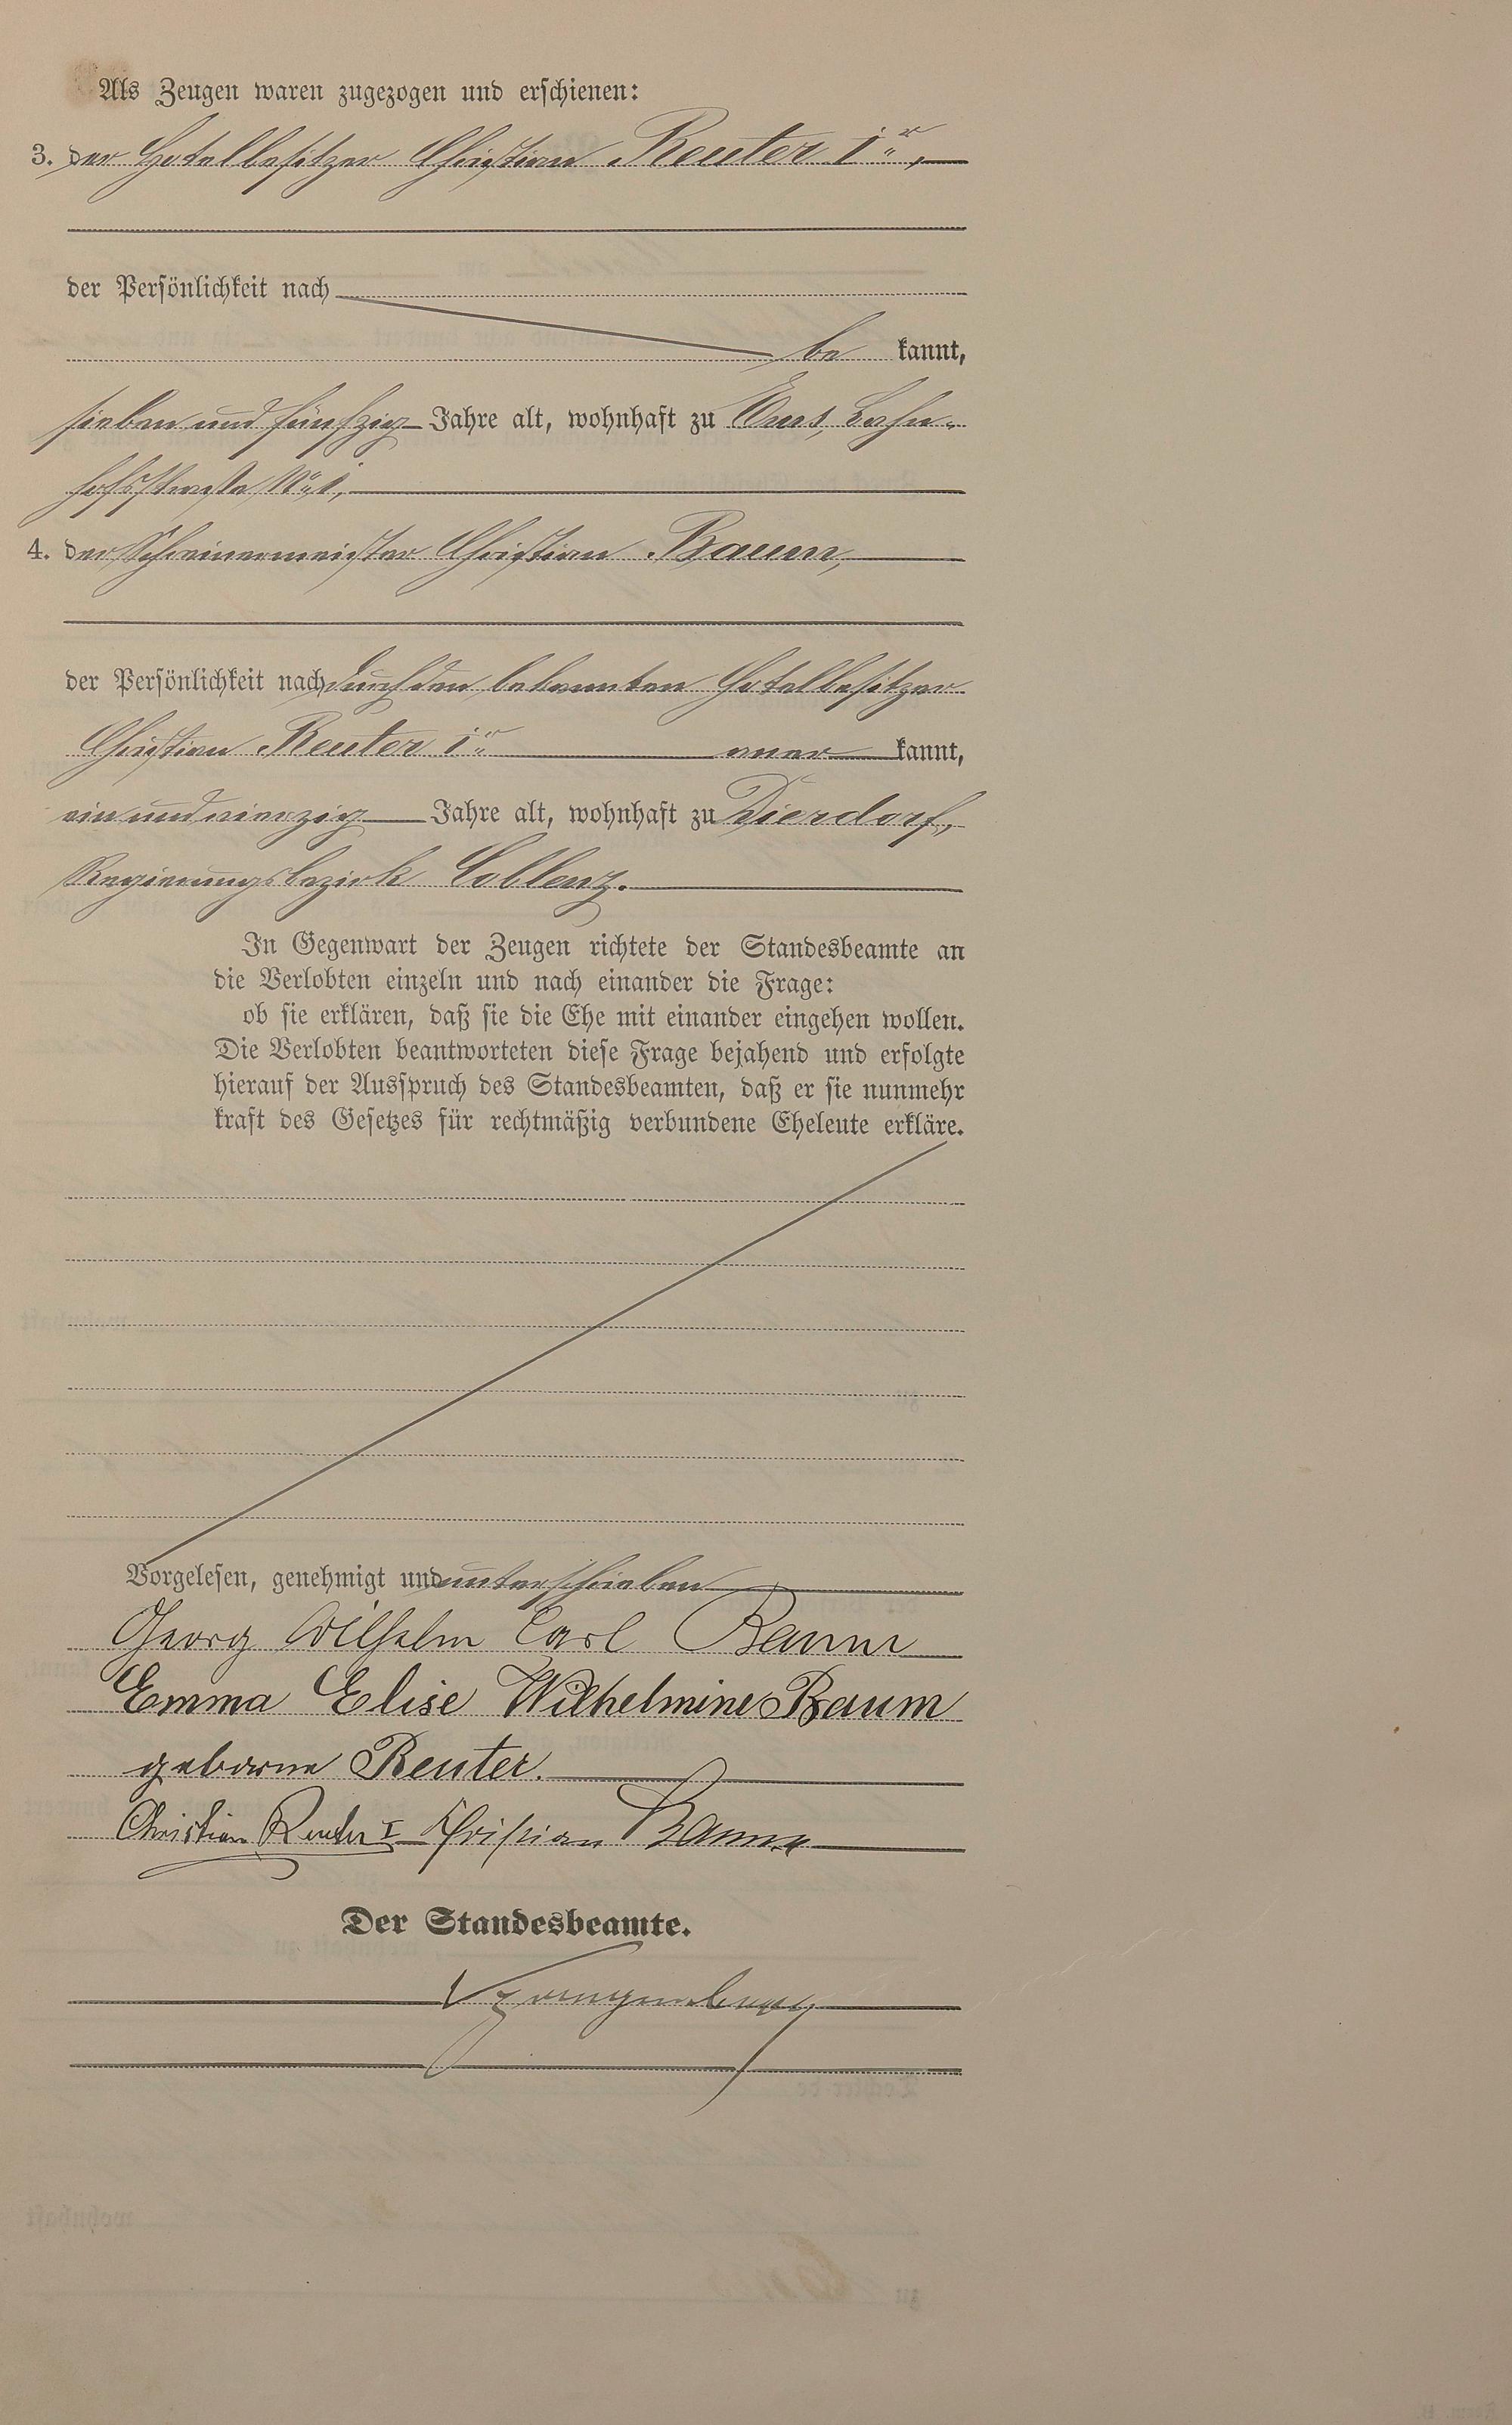 Als Zeugen waren zugezogen und erschienen:
3. der Hotelbesitzer Christian Reuter 1r,
der Persönlichkeit nach
be kannt,
sieben und fünfzig Jahre alt, wohnhaft zu Ems, Bahn-
hofsstraße No 1,
4. der Schreinermeister Christian Baum,
der Persönlichkeit nach durch den bekannten Hotelbesitzer
Christian Reuter 1r aner kannt,
ein und vierzig Jahre alt, wohnhaft zu Dierdorf,
Regierungsbezirk Coblenz.
In Gegenwart der Zeugen richtete der Standesbeamte an
die Verlobten einzeln und nach einander die Frage:
ob sie erklären, daß sie die Ehe mit einander eingehen wollen.
Die Verlobten beantworteten diese Frage bejahend und erfolgte
hierauf der Ausspruch des Standesbeamten, daß er sie nunmehr
kraft des Gesetzes für rechtmäßig verbundene Eheleute erkläre.
Vorgelesen, genehmigt und unterschrieben
Georg Wilhelm Carl Baum
Emma Elise Wilhelmine Baum
geborne Reuter.
Christian Reuter I Christian Baum
Der Standesbeamte.